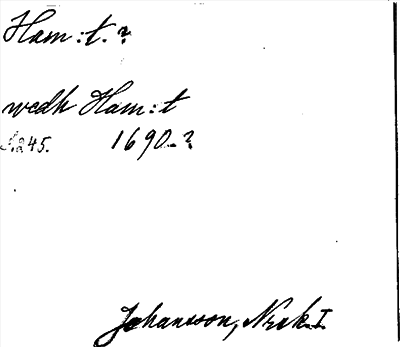 Ham:t. ?
wedh Ham:t
S. 245. 1690-?
Johansson, Norak. I.